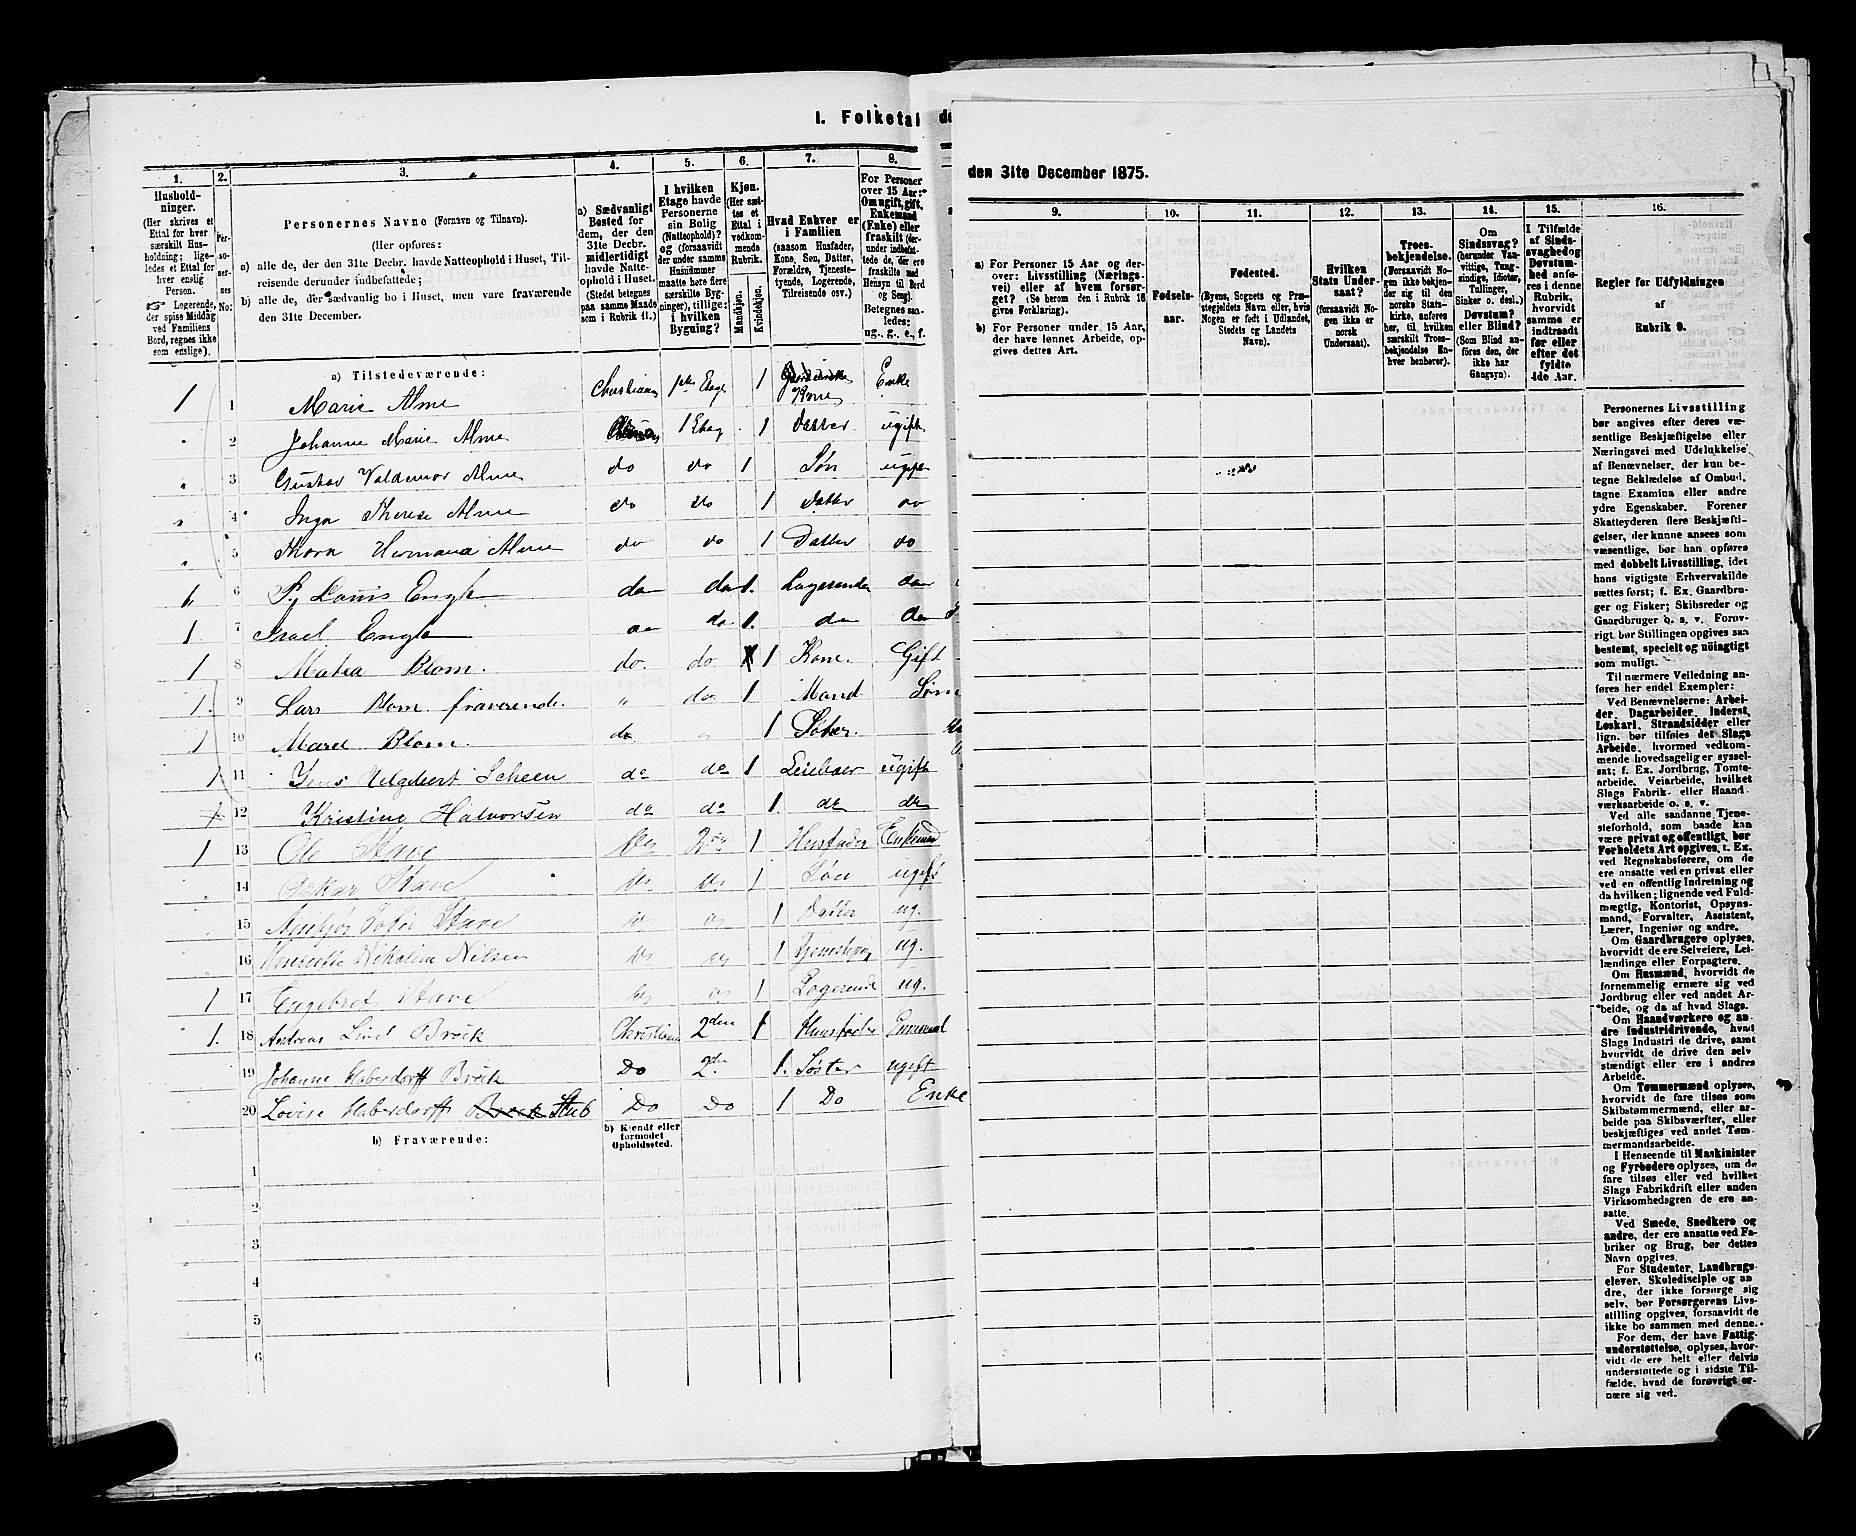 I. Folketal de
1. 2. 3. 4. 5. 6. 7. 8.
Hushold-
ninger.
(Her skrives et
Ettal for hver
særskilt Hus-
holdning; lige-
ledes et Ettal for
hver enslig
Person.
☞ Logerende,
der spise Middag
ved Familiens
Bord, regnes ikke
som enslige).
Per-
so-
ner-
nes
No:
Personernes Navne (Fornavn og Tilnavn).
(Her opføres:
a) alle de, der den 31te Decbr. havde Natteophold i Huset, Til-
reisende derunder indbefattede;
b) alle de, der sædvanlig bo i Huset, men vare fraværende
den 31te December.
a) Sædvanligt
Bosted for
dem, der den
31te Decbr.
midlertidigt
havde Natte-
ophold i Huset.
(Stedet betegnes
paa samme Maade
som i Rubrik 11.)
I hvilken
Etage havde
Personerne
sin Bolig
(Natteophold)?
og (forsaavidt
der under samme
Husnummer
maatte høre flere
særskilte Byg-
ninger), tillige:
i hvilken
Bygning?
Kjøn.
(Her sæt-
tes et
Ettal i
vedkom-
mende
Rubrik.
Mandkjøn.
Kvindekjøn.
Hvad Enhver er
i Familien
(saasom Husfader,
Kone, Søn, Datter,
Forældre, Tjeneste-
tyende, Logerende,
Tilreisende osv.)
For Personer
over 15 Aar:
Om ugift, gift,
Enkemand
(Enke) eller
fraskilt (der-
under indbefat-
tede de, der ere
fraskilte med
Hensyn til Bord
og Seng).
Betegnes saa-
ledes:
ug., g., e., f.
a) Tilstedeværende:
1 1 Marie Alme Christiania 1ste Etage 1 Kone Enke
" 2 Johanne Marie Alme 1 Etag 1 Datter ugift
" 3 Gustav Valdemar Alme do do 1 Søn ugift
" 4 Inga Therese Alme do do 1 Datter do
" 5 Thora Hermana Alme do do 1 Datter do
1 6 Louis Engh do do 1 Logerende do
1 7 Israel Engh do do 1 do do
1 8 Matea Blom. do. do. 1 Kone. Gift
1. 9 Lars Blom fraverende. " do 1 Mand
1 10 Maren Blom. do " 1
1 11 Jens Scheen do do 1 Leieboer ugift
12 Kristine Halvorsen do do 1 do do
1 13 Ole Stave Do 2den 1 Husfader Enkemand
14 Oskar Stave Do Do 1 Søn ugift
15 Sofie Stave Do Do 1 Datter ug.
16 Henriette Nikoline Nilsen Do Do 1 ug.
1 17 Engebret Stave Do Do 1 Logerende ug.
1. 18 Andreas Lind Brock Christiania 2den 1 Husfader
19 Johanne Haberdorff Brock Do 2den 1. Søster ugift
20 Lovise Haberdorff Brock Stub Do Do 1 Do Enke
b) Fraværende:
b) Kjendt eller
formodet
Opholdssted.
1
2
3
4
5
6
den 31te December 1875.
9. 10. 11. 12. 13. 14. 15. 16.
a) For Personer 15 Aar og der-
over: Livsstilling (Nærings-
vei) eller af hvem forsør-
get? (Se herom den i Rubrik 16
givne Forklaring).
b) For Personer under 15 Aar,
der have lønnet Arbeide, op-
gives dettes Art.
Fødsels-
aar.
Fødested.
(Byens, Sognets og Præ-
stegjeldets Navn eller, hvis
Nogen er født i Udlandet,
Stedets og Landets
Navn).
Hvilken
Stats Under-
saat?
(forsaavidt No-
gen ikke er
norsk
Undersaat).
Troes-
bekjendelse.
(Forsaavidt No-
gen ikke bekjen-
der sig til den
norske Stats-
kirke, anføres
her, til hvilken
særskilt Troes-
bekjendelse En-
hver henhører).
Om
Sindssvag?
(herunder Van-
vittige, Tung-
sindige, Idioter,
Tullinger,
Sinker o. desl.)
Døvstum?
eller Blind?
(Som Blind an-
føres den, der
ikke har
Gangsyn).
I Tilfælde
af Sinds-
svaghed og
Døvstum-
hed anfø-
res i denne
Rubrik,
hvorvidt
samme er
indtraadt
før eller
efter det
fyldte
4de Aar.
Regler for Udfyldningen
af
Rubrik 9.
Personernes Livsstilling
bør angives efter deres væ-
sentlige Beskjæftigelse eller
Næringsvei med Udelukkelse
af Benævnelser, der kun be-
tegne Beklædelse af Ombud,
tagne Examina eller andre
ydre Egenskaber. Forener
Skatteyderen flere Beskjæfti-
gelser, der kunne ansees som
væsentlige, bør han opføres
med dobbelt Livsstilling, idet
hans vigtigste Erhvervskilde
sættes først; f. Ex. Gaardbru-
ger og Fisker; Skibsreder og
Gaardbruger o. s. v. Forøv-
rigt bør Stillingen opgives saa
bestemt, specielt og nøiagtigt
som muligt.
Til nærmere Veiledning an-
føres her endel Exempler:
Ved Benævnelserne: Arbei-
der, Dagarbeider, Inderst,
Løskarl, Strandsidder eller
lign. bør tilføies det Slags
Arbeide, hvormed vedkom-
mende hovedsagelig er syssel-
sat; f. Ex. Jordbrug, Tomte-
arbeide, Veiarbeide, hvilket
Slags Fabrik- eller Haand-
værksarbeide o. s. v.
Ved alle saadanne Tjene-
steforhold, som baade kan
være privat og offentligt, bør
Forholdets Art opgives, t. Ex.
ved Regnskabsførere, om de
ere ansatte ved en privat eller
ved en offentlig Indretning og
da hvilken; lignende ved Fuld-
mægtig, Kontorist, Opsyns-
mand, Forvalter, Assistent,
Lærer, Ingeniør og andre.
Om Gaardbrugere oplyses,
hvorvidt de ere Selveiere, Lei-
lændinge eller Forpagtere.
Om Husmænd, hvorvidt de
fornemmelig ernære sig ved
Jordbrug eller ved andet Ar-
beide, og da af hvad Slags.
Om Haandværkere og an-
dre Industridrivende, hvad
Slags Industri de drive, samt
hvorvidt de drive den selv-
stændigt eller ere i andres
Arbeide.
Om Tømmermænd oplyses,
hvorvidt de fare tilsøs som
Skibstømmermænd, eller ar-
beide paa Skibsværfter, eller
beskjæftiges ved andet Tøm-
mermandsarbeide.
I Henseende til Maskinister
og Fyrbødere oplyses, om de
fare tilsøs eller ved hvilket
Slags Fabrikdrift eller anden
Virksomhedsgren de ere an-
satte.
Ved Smede, Snedkere og
andre, der ere ansatte ved Fa-
briker og Brug, bør dettes
Navn opgives.
For Studenter, Landbrugs-
elever, Skoledisciple og an-
dre, der ikke forsørge sig
selv, bør Forsørgerens Livs-
stilling opgives, forsaavidt de
ikke bo sammen med denne.
For dem, der have Fattig-
understøttelse, oplyses, hvor-
vidt de ere helt eller delvis
understøttede og i sidste Til-
fælde, hvad de forøvrigt er-
nære sig ved.